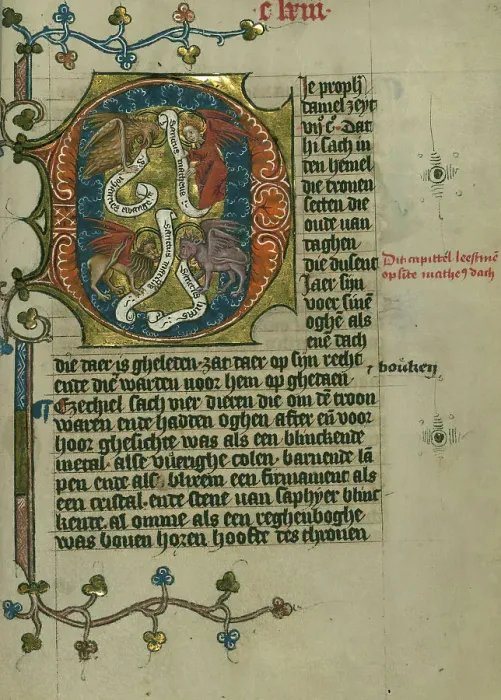 c lxiii.
Je prophē
daniel zeyt
vij c. Dat
hi sach in
den hemel
die tronen
setten die
oude van
daghen
die dusent
Jaer sijn
voer sinē
oghē als
enē dach
die daer is gheleden. zat daer op sijn recht
ende diē warden voor hem op ghedaen
bouken
Ezechiel sach vier dieren die om dē troon
waren ende hadden oghen after eñ voor
hoor ghesichte was als een blinckende
metal. alse vuerighe colen. barnende lā
pen ende als blixem een firmament als
een cristal. ende stene van saphyer blinc
kende. al omme als een reghenboghe
was bouen horen hoofde des chronen
Dit capittel leestmē
op sīte matheꝰ dach
Sanctus matheus
Sanctus lucas